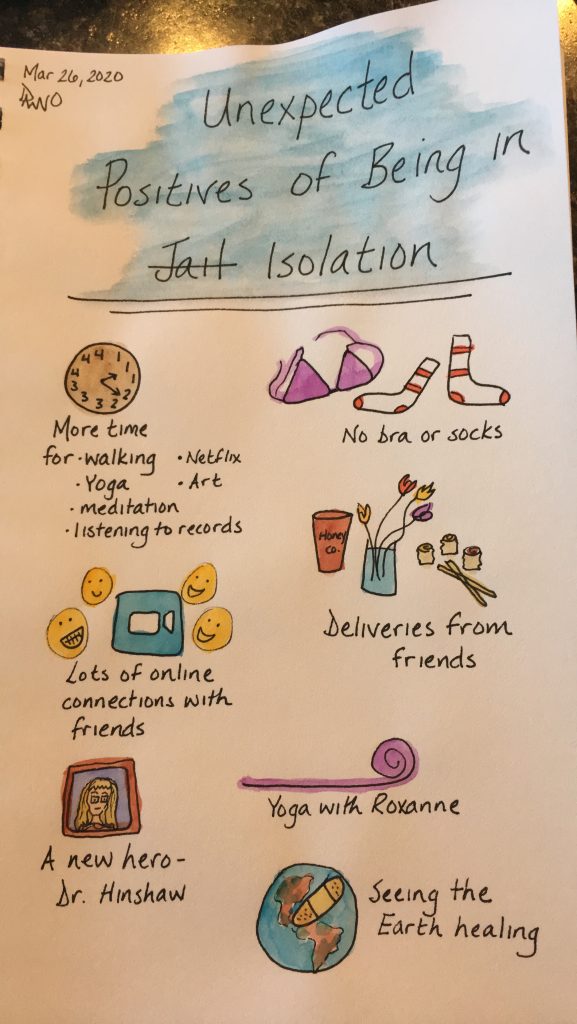 Mar 26, 2020
Unexpected
Positives of Being in
Jail Isolation
More time
for • walking • Netflix
• Yoga • Art
• meditation
• listening to records
No bra or socks
Honey
Co.
Deliveries from
friends
Lots of online
connections with
friends
Yoga with Roxanne
A new hero-
Dr. Hinshaw
Seeing the
Earth healing